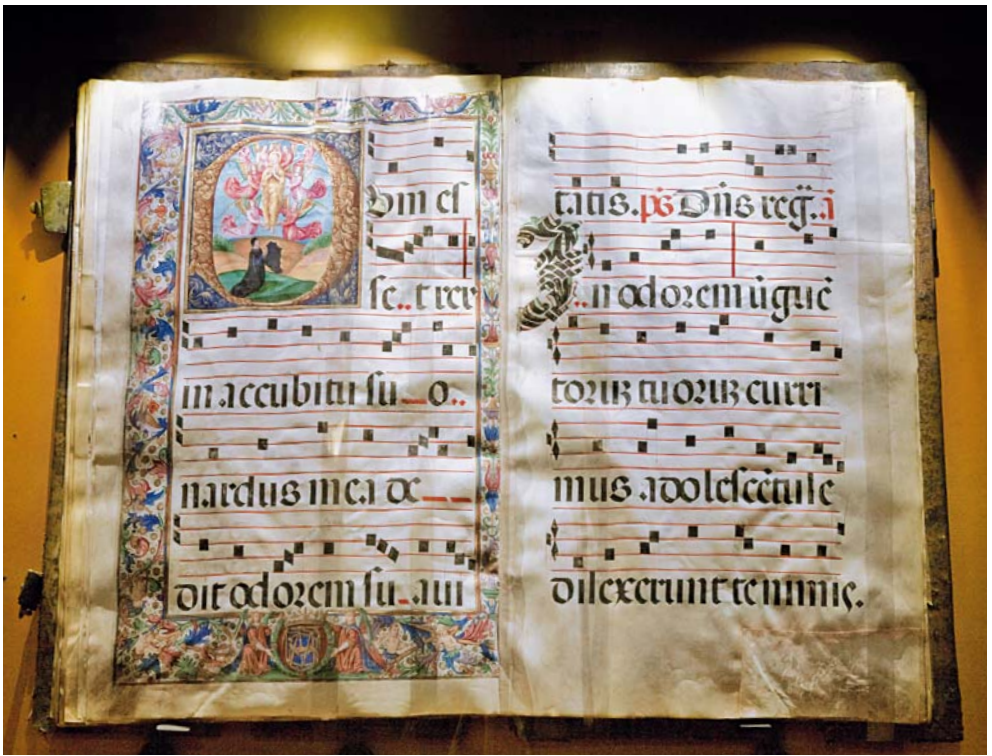 Dum es
se..t rex
in accubitu su_o..
nardus mea de__
dit odorem su_aui
tatis. ps Dn̄s reḡ. a
In odorem ūguē
toruꝝ tuoruꝝ curri
mus adolescētule
dilexerunt te nimis.